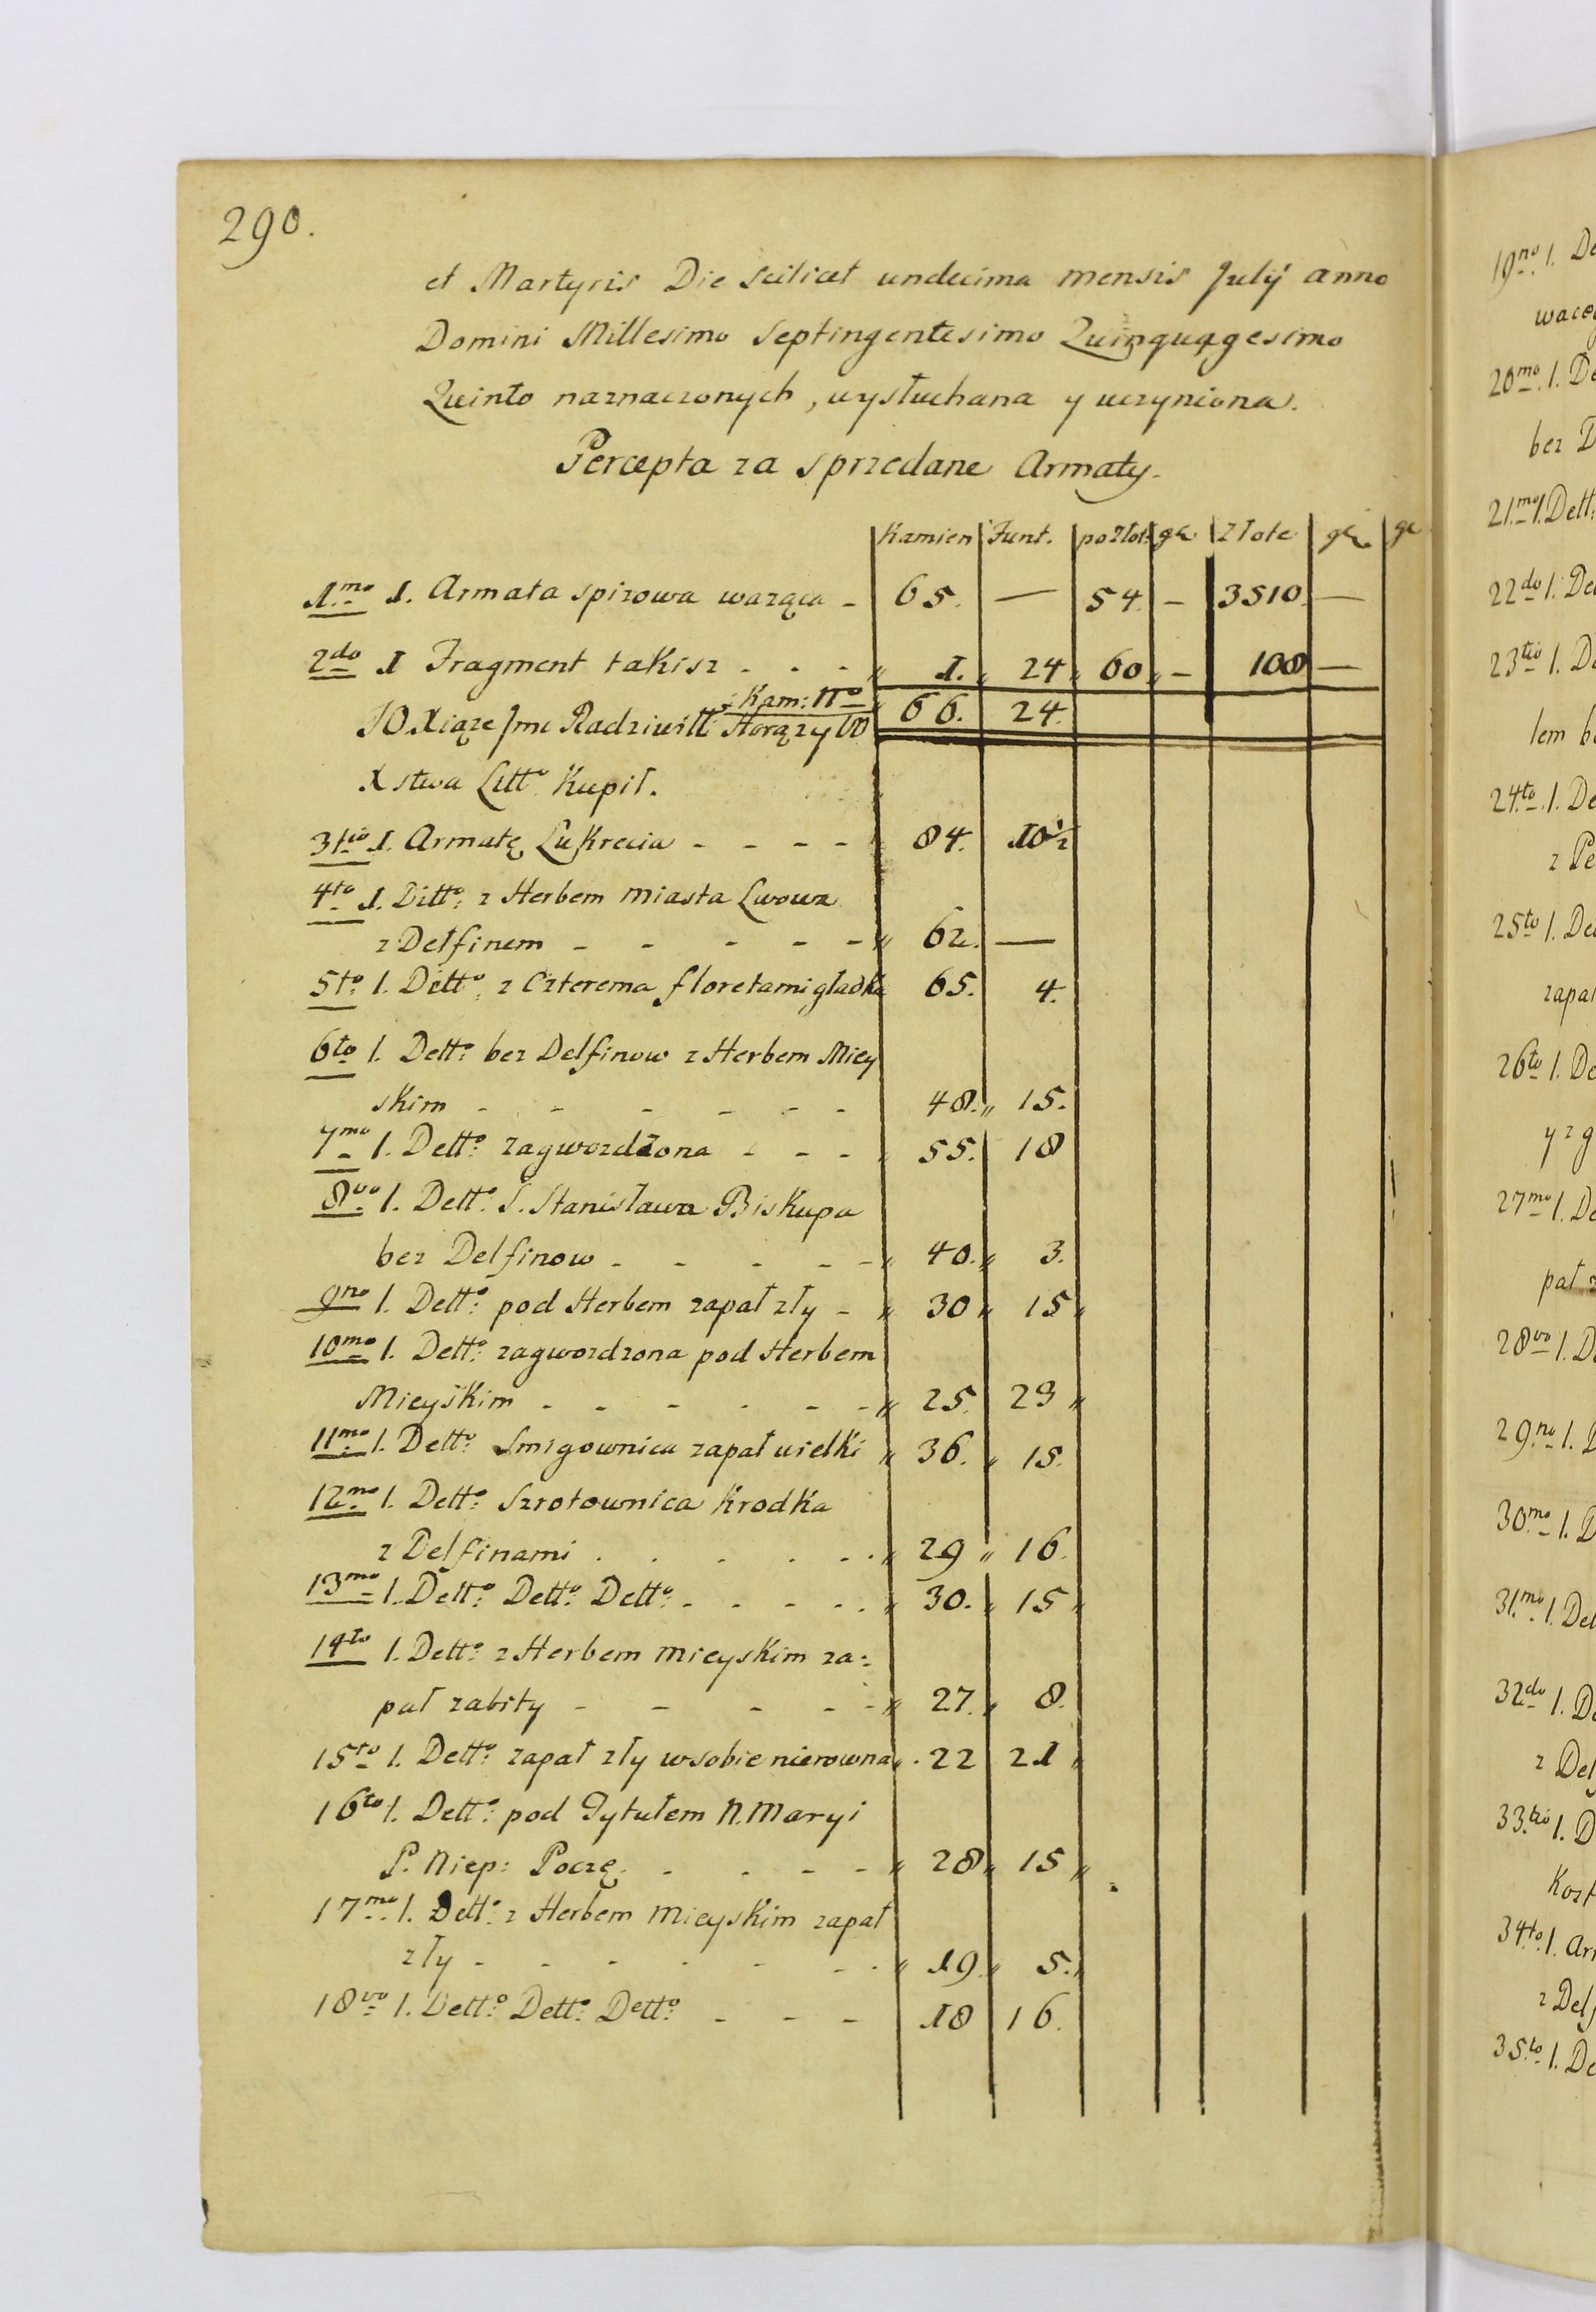 290.
et Martyris Die scilicet undecima mensis Julij anno
Domini Millesimo Septingentesimo Quinquagesimo
Quinto naznaczonych, wysłuchana y uczyniona.
Percepta za sprzedane Armaty.
Kamien Funt. po złot. gr. Złote gr. gr
1.mo 1. Armata spizowa warząca - 65. — 54. - 3510. —
2do 1 Fragment takisz - - - 1. 24 60 - 100 —
Kam: No
JO. Xiąze Jmc Radziwiłł Horąży W 66. 24.
X stwa Litto Kupił.
3tio 1. Armatę Lukrecia - - - - 84. 10½
4to 1. Ditto: z Herbem Miasta Lwowa
z Delfinem - - - - - 62. —
5to 1. Ditto: z Czterema floretami gładka 65. 4.
6to 1. Detto: bez Delfinow z Herbem Miey
skim - - - - - - 48. 15.
7mo 1. Detto: zagwozdzona - - - 55. 18
8vo 1. Detto: S. Stanisława Biskupa
bez Delfinow - - - - - 40. 3.
9no 1. Detto: pod Herbem zapał zły - 30 15
10mo 1. Detto: zagwozdzona pod Herbem
Mieyskim - - - - - - 25. 23
11mo 1. Detto: Smigownica zapał wielki 36. 15.
12mo 1. Detto: Szrotownica Krodka
z Delfinami . . . . . . 29 16.
13mo 1. Detto: Detto: Detto: - - - - - 30. 15
14to 1. Detto: z Herbem mieyskim za:
pał zabity - - - - - 27. 8.
15to 1. Detto: zapał zły w sobie nierowna 22 21
16to 1. Detto: pod Tytułem N. Maryi
P. Niep: Poczę. - - - - 28 15
17mo 1. Detto: z Herbem Mieyskim zapał
zły - - - - - - - 19. 5.
18vo 1. Detto: Detto: Detto: - - - 18 16.
19no 1. De
20mo 1. De
bez D
21.mo 1. Dett:
22do 1. De
23tio 1. De
lem b
24to 1. De
z Pe
25to 1. De
zapał
26to 1. De
y z g
27mo 1. De
pał z
28vo 1. D
29.no 1. D
30mo 1. D
31.mo 1. Det
32do 1. De
z Del
33.tio 1. D
Kozt
34.to 1. Ar
z Del
35.to 1. De